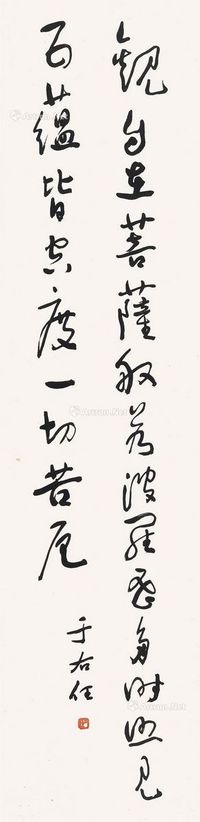 觀自在菩薩般若波羅蜜多時照見
五蘊皆空度一切苦厄
于右任